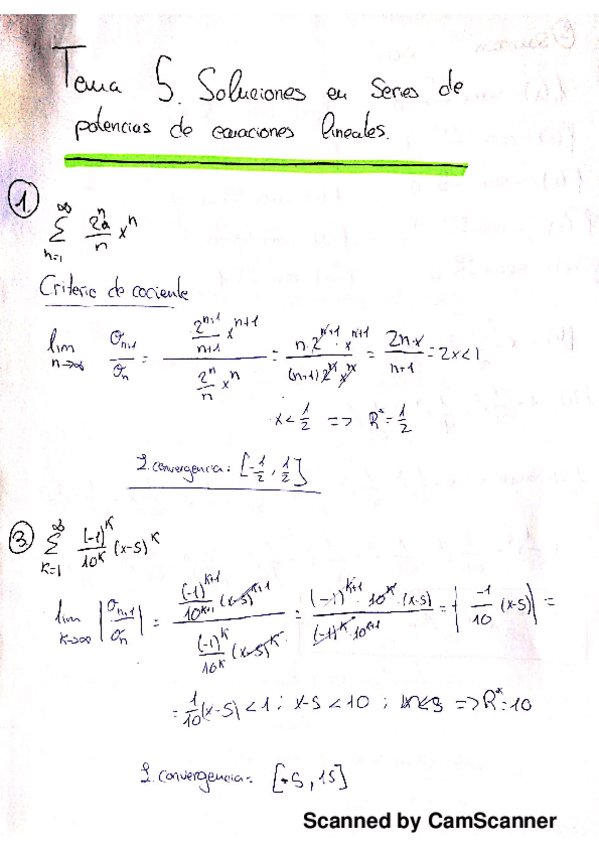 Tema 5. Soluciones en series de
potencias de ecuaciones lineales.
1.
∞ Σ n=1 2ⁿ/n xⁿ
Criterio de cociente
lim n→∞ σn+1/σn = (2ⁿ⁺¹/(n+1) xⁿ⁺¹)/(2ⁿ/n xⁿ) = (n·2ⁿ⁺¹·xⁿ⁺¹)/((n+1) 2ⁿ xⁿ) = 2n·x/(n+1) = 2x<1
x<1/2 => R*=1/2
I.convergencia: [-1/2, 1/2]
3. ∞ Σ K=1 (-1)ᴷ/10ᴷ (x-5)ᴷ
lim K→∞ |σn+1/σn| = ((-1)ᴷ⁺¹/10ᴷ⁺¹ (x-5)ᴷ⁺¹)/((-1)ᴷ/10ᴷ (x-5)ᴷ) = ((-1)ᴷ⁺¹ 10ᴷ·(x-5))/((-1)ᴷ·10ᴷ⁺¹) = |-1/10 (x-5)| =
= 1/10(x-5) <1 ; x-5 <10 ; => R*=10
I.convergencia= [-5, 15]
Scanned by CamScanner